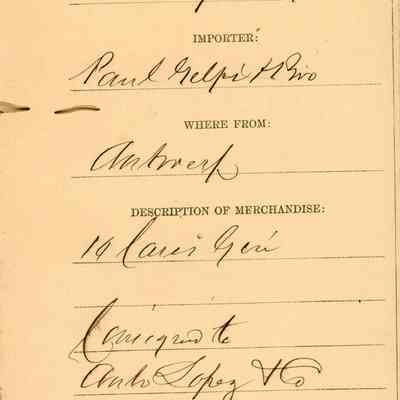 IMPORTER:
Paul Gelpi & Bro
WHERE FROM:
Antwerp
DESCRIPTION OF MERCHANDISE:
Cases Gin
Consigned to
Lopez & Co